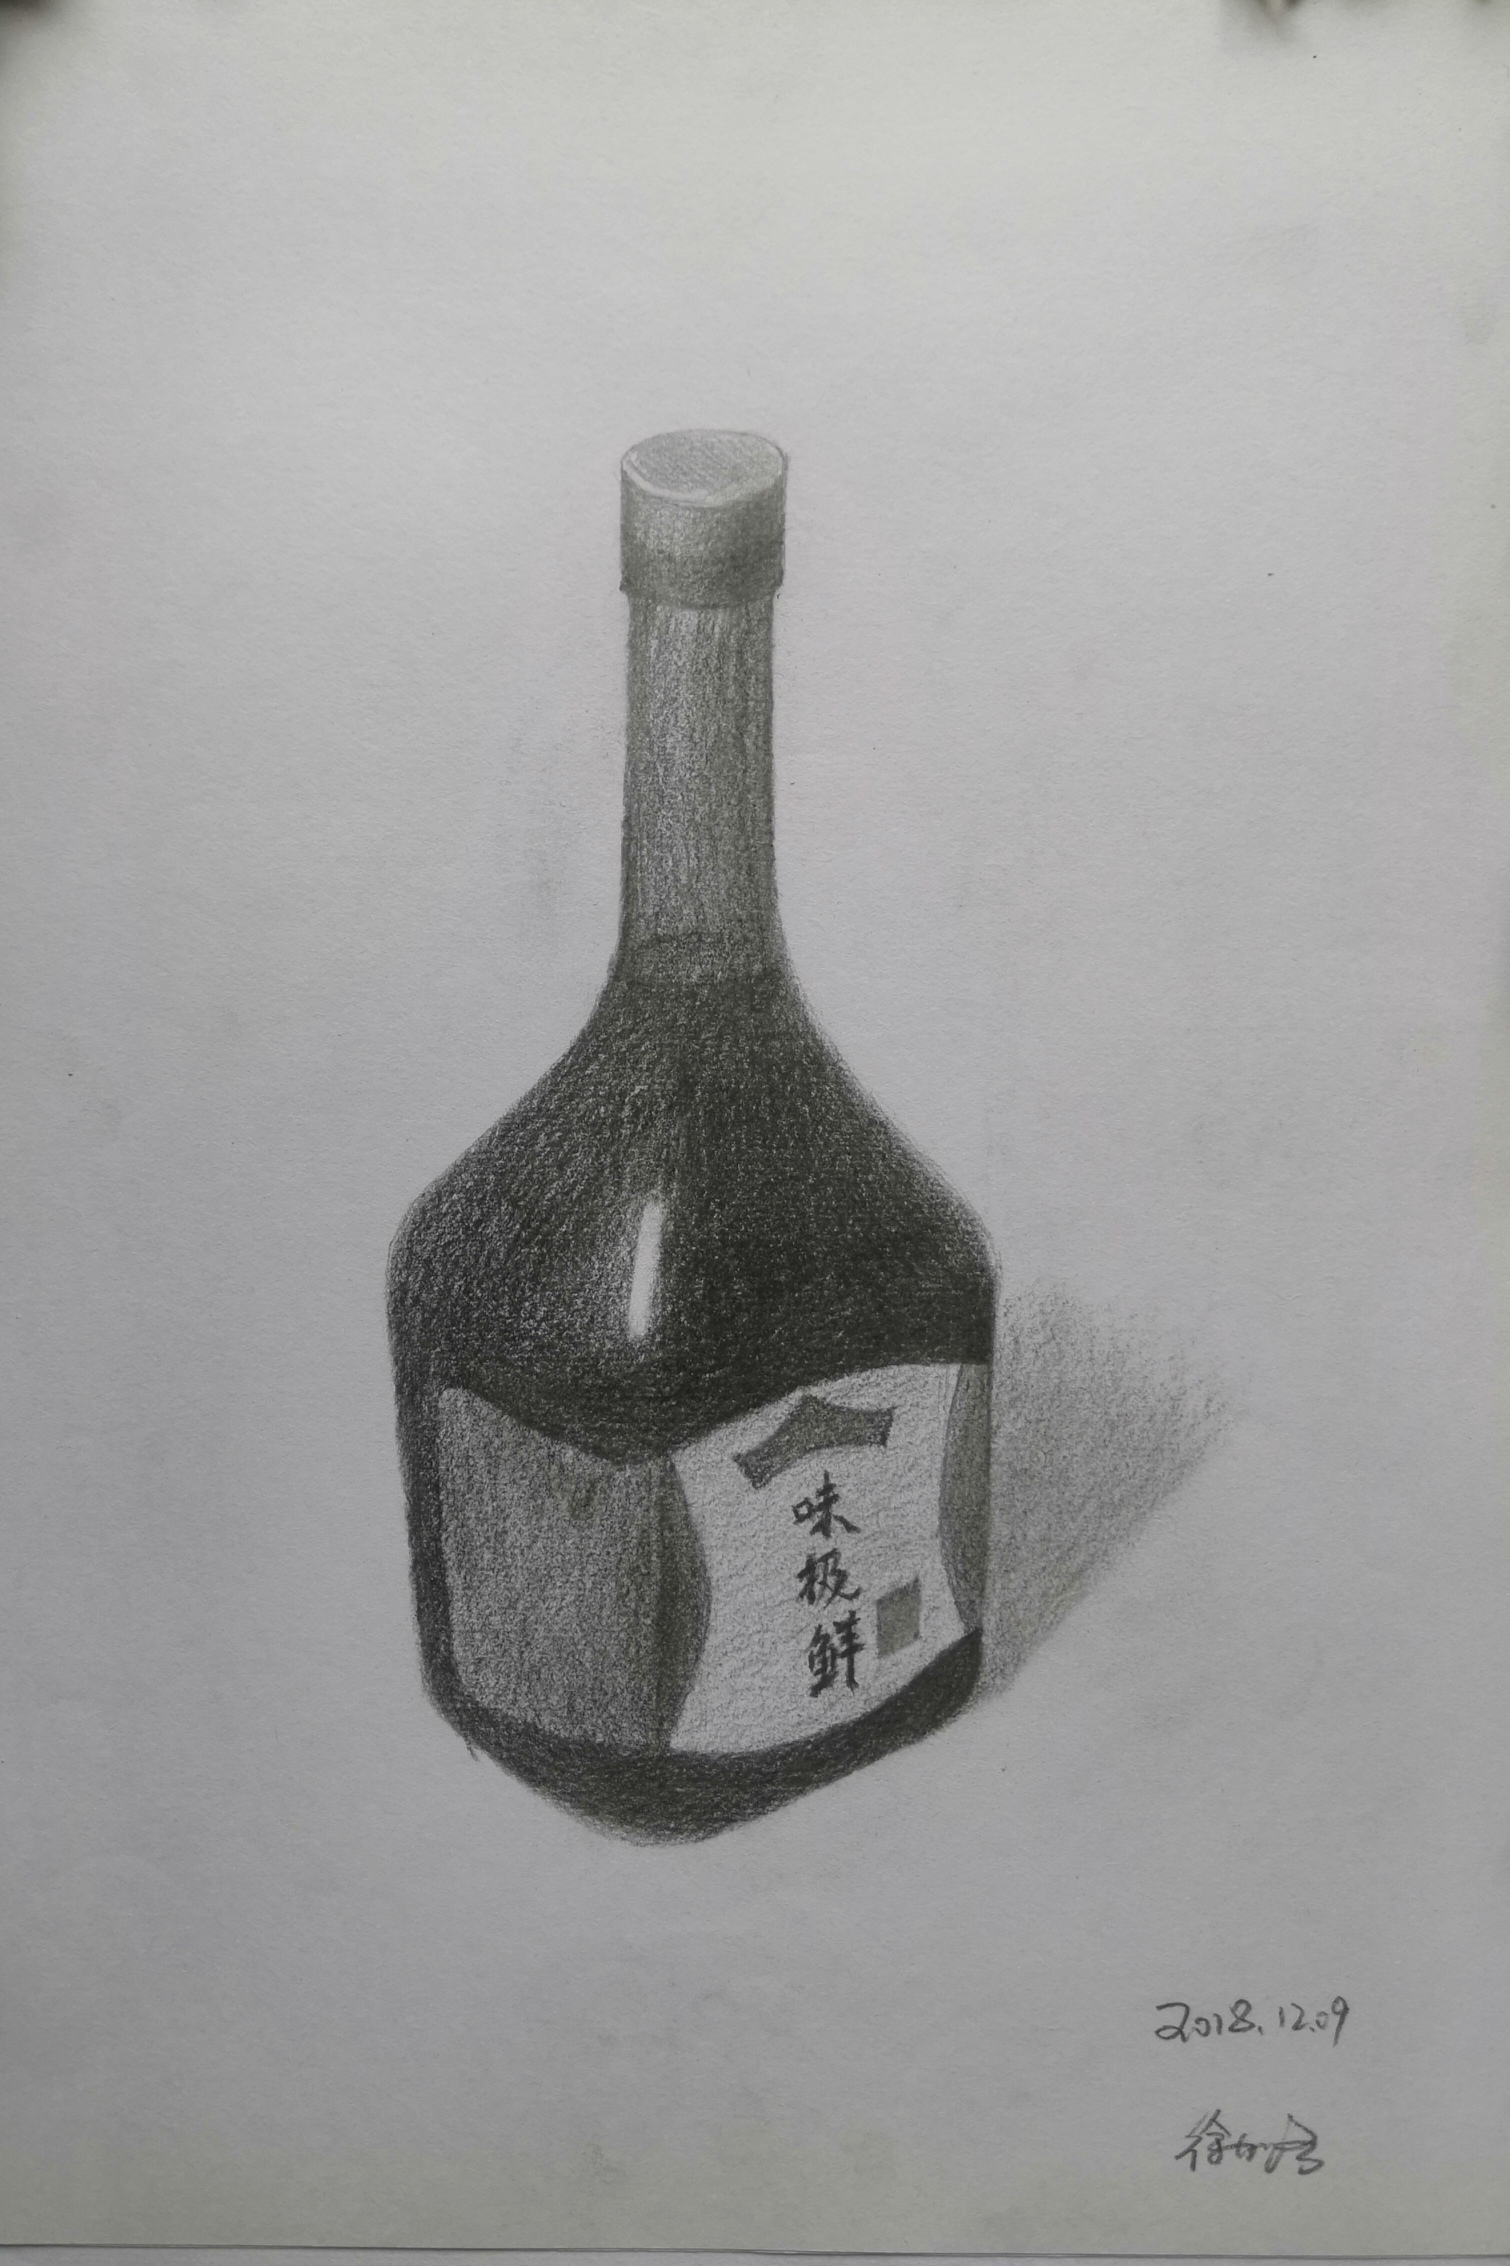 一
味
极
鲜
2018.12.09